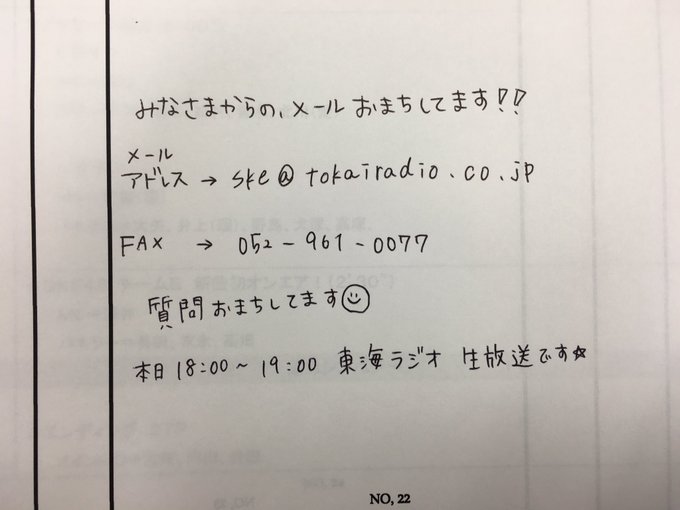 みなさまからの、メールおまちしてます!!
メール
アドレス → ske@tokairadio.co.jp
FAX → 052-961-0077
質問おまちしてます☺
本日 18:00～19:00 東海ラジオ 生放送です☆
NO, 22